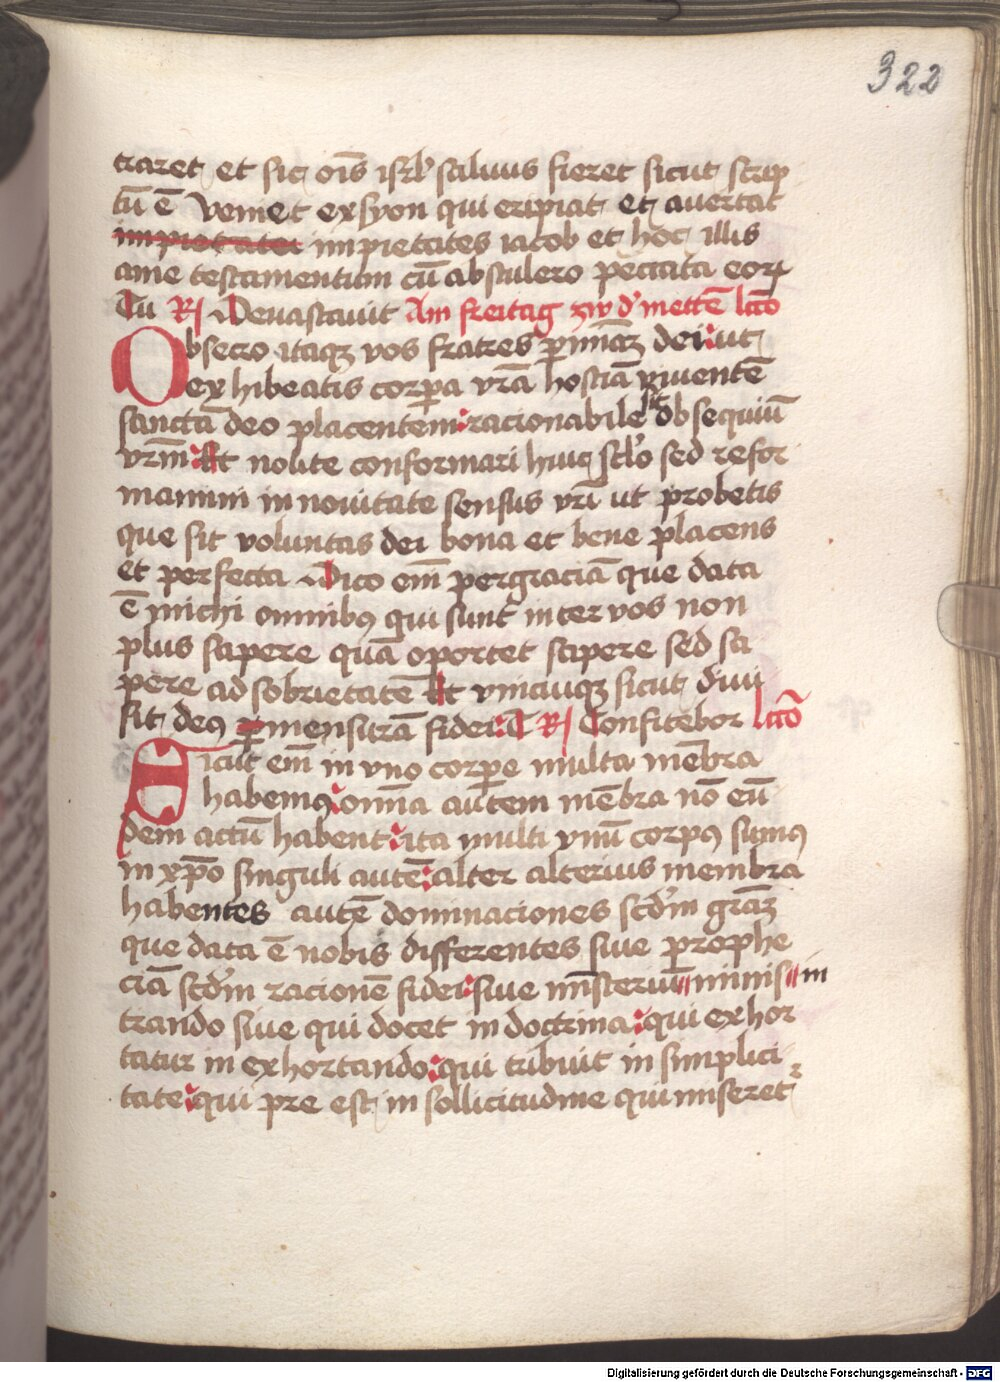 322
traret et sic oīs isrl̄ saluus fieret sicut scrip
tū ē Veniet ex syon qui eripiat et auertat
impietates impietates iacob et hoc illis
ame testamentum cū abstulero peccata eorꝝ
Tu R/ Deuastauit Am freitag zw d' mettē lcc̄o
Obsecro itaqꝫ vos fratres ꝑ mīaꝫ dei ut
ex hibeatis corꝑa vrā hostiā viuentē
sanctā deo placentem racionabile sit obsequiū
vrm̄ Et nolite conformari huiꝰ sc̄lo sed refor
mamini in nouitate sensus vrī ut probetis
que sit voluntas dei bona et bene placens
et perfecta Dico em̄ per graciā que data
ē michi omnibꝰ qui sunt inter vos non
plus sapere quā oportet sapere sed sa
pere ad sobrietatē Et vnicuiqꝫ sicut diui
sit deꝰ ꝑ mensurā fidei T R/ Confitebor lcc̄o
Sicut em̄ in vno corꝑe multa mēbra
habemꝰ om̄a autem mēbra nō eū
dem actū habent ita multi vnū corpꝰ sumꝰ
in xp̄o singuli autē alter alterius membra
habentes autē dominaciones scd̄m grāꝫ
que data ē nobis differentes siue prophe
ciā scd̄m racionē fidei siue mīsteriū // minis // in
trando siue qui docet in doctrina qui exhor
tatur in exhortando qui tribuit in simplici
tate qui pre est in sollicitudine qui miseret᷑
Digitalisierung gefördert durch die Deutsche Forschungsgemeinschaft - DFG